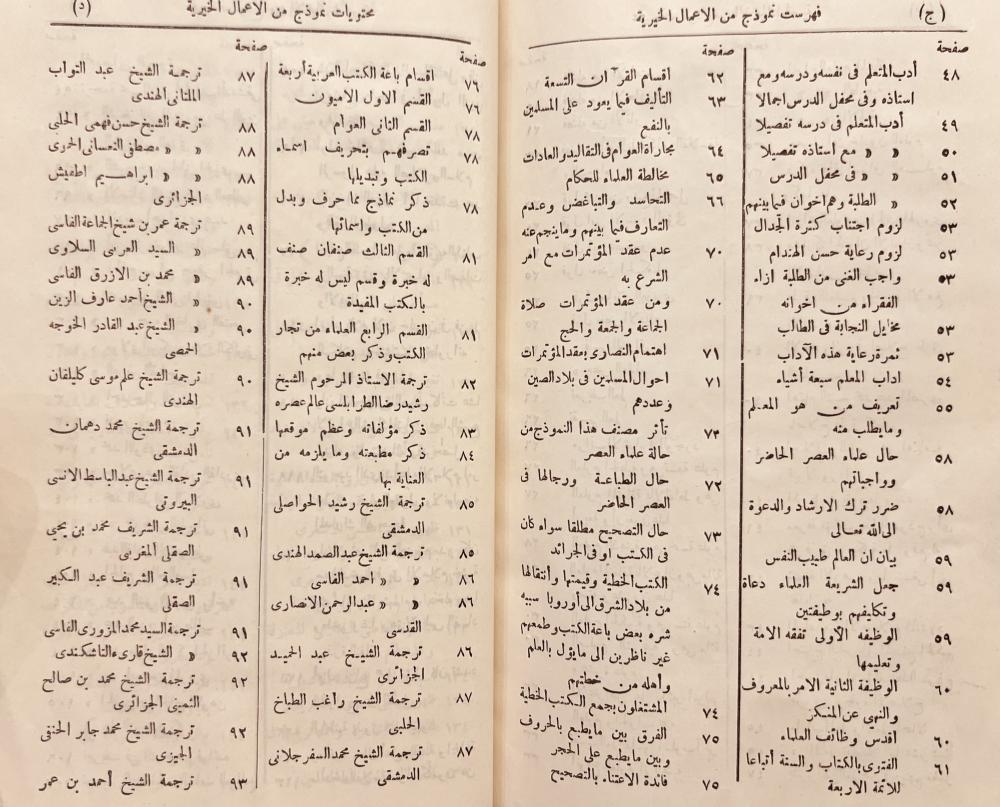 (ج) فهرست نموذج من الاعمال الخيرية
صفحة
٤٨ أدب المتعلم فى نفسه ودرسه ومع
استاذه وفى محفل الدرس اجمالا
٤٩ أدب المتعلم فى درسه تفصيلا
٥٠ » » مع استاذه تفصيلا
٥١ » » فى محفل الدرس
٥٢ » الطلبة وهم اخوان فيما بينهم
٥٣ لزوم اجتناب كثرة الجدال
٥٣ لزوم رعاية حسن الهندام
٥٣ واجب الغنى من الطلبة ازاء
الفقراء من اخوانه
٥٣ مخايل النجابة فى الطالب
٥٣ ثمرة رعاية هذه الآداب
٥٤ اداب المعلم سبعة أشياء
٥٥ تعريف من هو المعلم
ومايطلب منه
٥٨ حال علماء العصر الحاضر
وواجباتهم
٥٨ ضرر ترك الارشاد والدعوة
الى الله تعالى
٥٩ بيان ان العالم طبيب النفس
٥٩ جعل الشريعة العلماء دعاة
وتكليفهم بوظيفتين
٥٩ الوظيفه الأولى تفقه الامة
وتعليمها
٦٠ الوظيفة الثانية الامر بالمعروف
والنهي عن المنكر
٦٠ أقدس وظائف العلماء
٦١ الفتوى بالكتاب والسنة أتباعا
للائمة الاربعة
صفحة
٦٢ اقسام القرآن التسعة
٦٣ التأليف فيما يعود على المسلمين
بالنفع
٦٤ مجاراة العوام فى التقاليد والعادات
٦٥ مخالطة العلماء للحكام
٦٦ التحاسد والتباغض وعدم
التعارف فيما بينهم وماينجم عنه
٧٠ عدم عقد المؤتمرات مع امر
الشرع به
٧٠ ومن عقد المؤتمرات صلاة
الجماعة والجمعة والحج
٧١ اهتمام النصارى بعقد المؤتمرات
٧١ احوال المسلمين فى بلاد الصين
وعددهم
٧٢ تأثر مصنف هذا النموذج من
حالة علماء العصر
٧٢ حال الطباعة ورجالها فى
العصر الحاضر
٧٣ حال التصحيح مطلقا سواء كان
فى الكتب او فى الجرائد
٧٤ الكتب الخطية وقيمتها وأنتقالها
من بلاد الشرق الى أوروبا سببه
شره بعض باعة الكتب وطمعهم
غير ناظرين الى مايؤل بالعلم
وأهله من خطتهم
٧٤ المشتغلون بجمع الكتب الخطية
٧٥ الفرق بين مايطبع بالحروف
وبين مايطبع على الحجر
٧٥ فائدة الاعتناء بالتصحيح
محتويات نموذج من الاعمال الخيرية (د)
صفحة
٧٦ اقسام باعة الكتب العربية أربعة
٧٦ القسم الاول الاميون
٧٨ القسم الثانى العوام
٧٨ تصرفهم بتحريف اسماء
الكتب وتبديلها
٧٨ ذكر نماذج مما حرف وبدل
من الكتب واسمائها
٨١ القسم الثالث صنفان صنف
له خبرة وقسم ليس له خبرة
بالكتب المفيدة
٨١ القسم الرابع العلماء من تجار
الكتب وذكر بعض منهم
٨٢ ترجمة الاستاذ المرحوم الشيخ
رشيد رضا الطرابلسى عالم عصره
٨٣ ذكر مؤلفاته وعظم موقعها
٨٤ ذكر مطبعته وما يلزمه من
العناية بها
٨٥ ترجمة الشيخ رشيد الحواصلى
الدمشقى
٨٥ ترجمة الشيخ عبد الصمد الهندى
٨٦ » » احمد الفاسى
٨٦ » » عبد الرحمن الانصارى
القدسى
٨٦ ترجمة الشيخ عبد الحميد
الجزائرى
٨٧ ترجمة الشيخ راغب الطباخ
الحلبى
٨٧ ترجمة الشيخ محمد السفرجلانى
الدمشقى
صفحة
٨٧ ترجمة الشيخ عبد التواب
الملتانى الهندى
٨٨ ترجمة الشيخ حسن فهمى الحلبى
٨٨ » » مصطفى النعسانى الحموى
٨٨ » » ابراهيم اطفيش
الجزائرى
٨٩ ترجمة عمر بن شيخ الجماعة الفاسى
٨٩ » السيد العربى السلاوى
٨٩ » محمد بن الازرق الفاسى
٩٠ » الشيخ أحمد عارف الزين
٩٠ » الشيخ عبد القادر الخوجه
الحمصى
٩٠ ترجمة الشيخ علم موسى كليلفان
الهندى
٩١ ترجمة الشيخ محمد دهمان
الدمشقى
٩١ ترجمة الشيخ عبد الباسط الانسى
البيروتى
٩١ ترجمة الشريف محمد بن يحيى
الصقلى المغربى
٩١ ترجمة الشريف عبد الكبير
الصقلى
٩١ ترجمة السيد محمد المزورى الفاسى
٩٢ » الشيخ قارىء التاشكندى
٩٢ ترجمة الشيخ محمد بن صالح
الثمينى الجزائرى
٩٢ ترجمة الشيخ محمد جابر الحنفى
الجيزى
٩٣ ترجمة الشيخ أحمد بن عمر